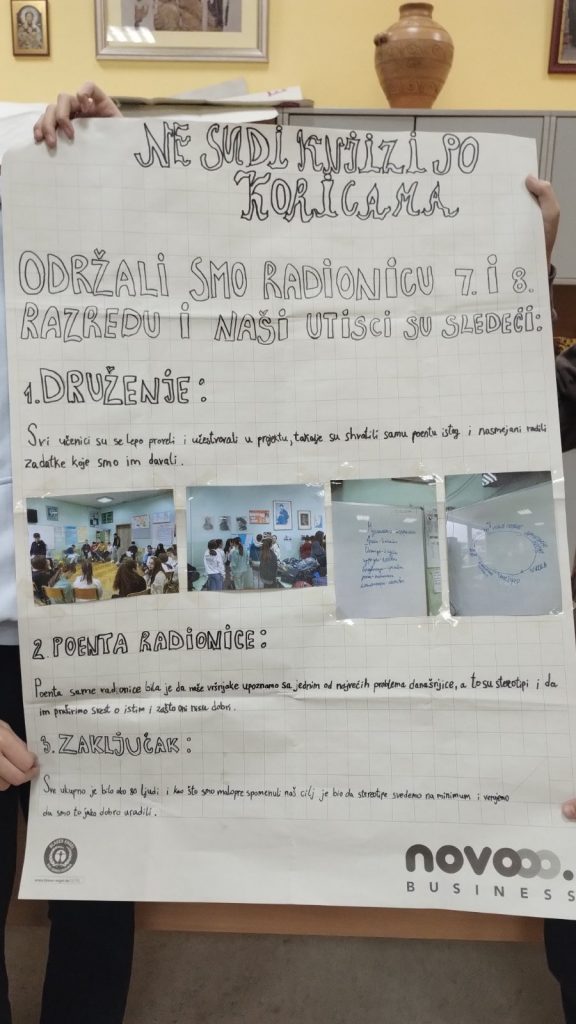 NE SUDI KNJIZI PO
KORICAMA
ODRŽALI SMO RADIONICU 7. I 8.
RAZREDU I NAŠI UTISCI SU SLEDEĆI:
1. DRUŽENJE:
Svi učenici su se lepo proveli i učestvovali u projektu, takodje su shvatili samu poentu istog i nasmejani radili
zadatke koje smo im davali.
2. POENTA RADIONICE:
Poenta same radionice bila je da naše vršnjake upoznamo sa jednim od najvećih problema današnjice, a to su stereotipi i da
im proširimo svest o istim i zašto oni nisu dobri.
3. ZAKLJUČAK:
Sve ukupno je bilo oko 80 ljudi i kao što smo malopre spomenuli naš cilj je bio da stereotipe svedemo na minimum i verujemo
da smo to jako dobro uradili.
novooo.
BUSINESS